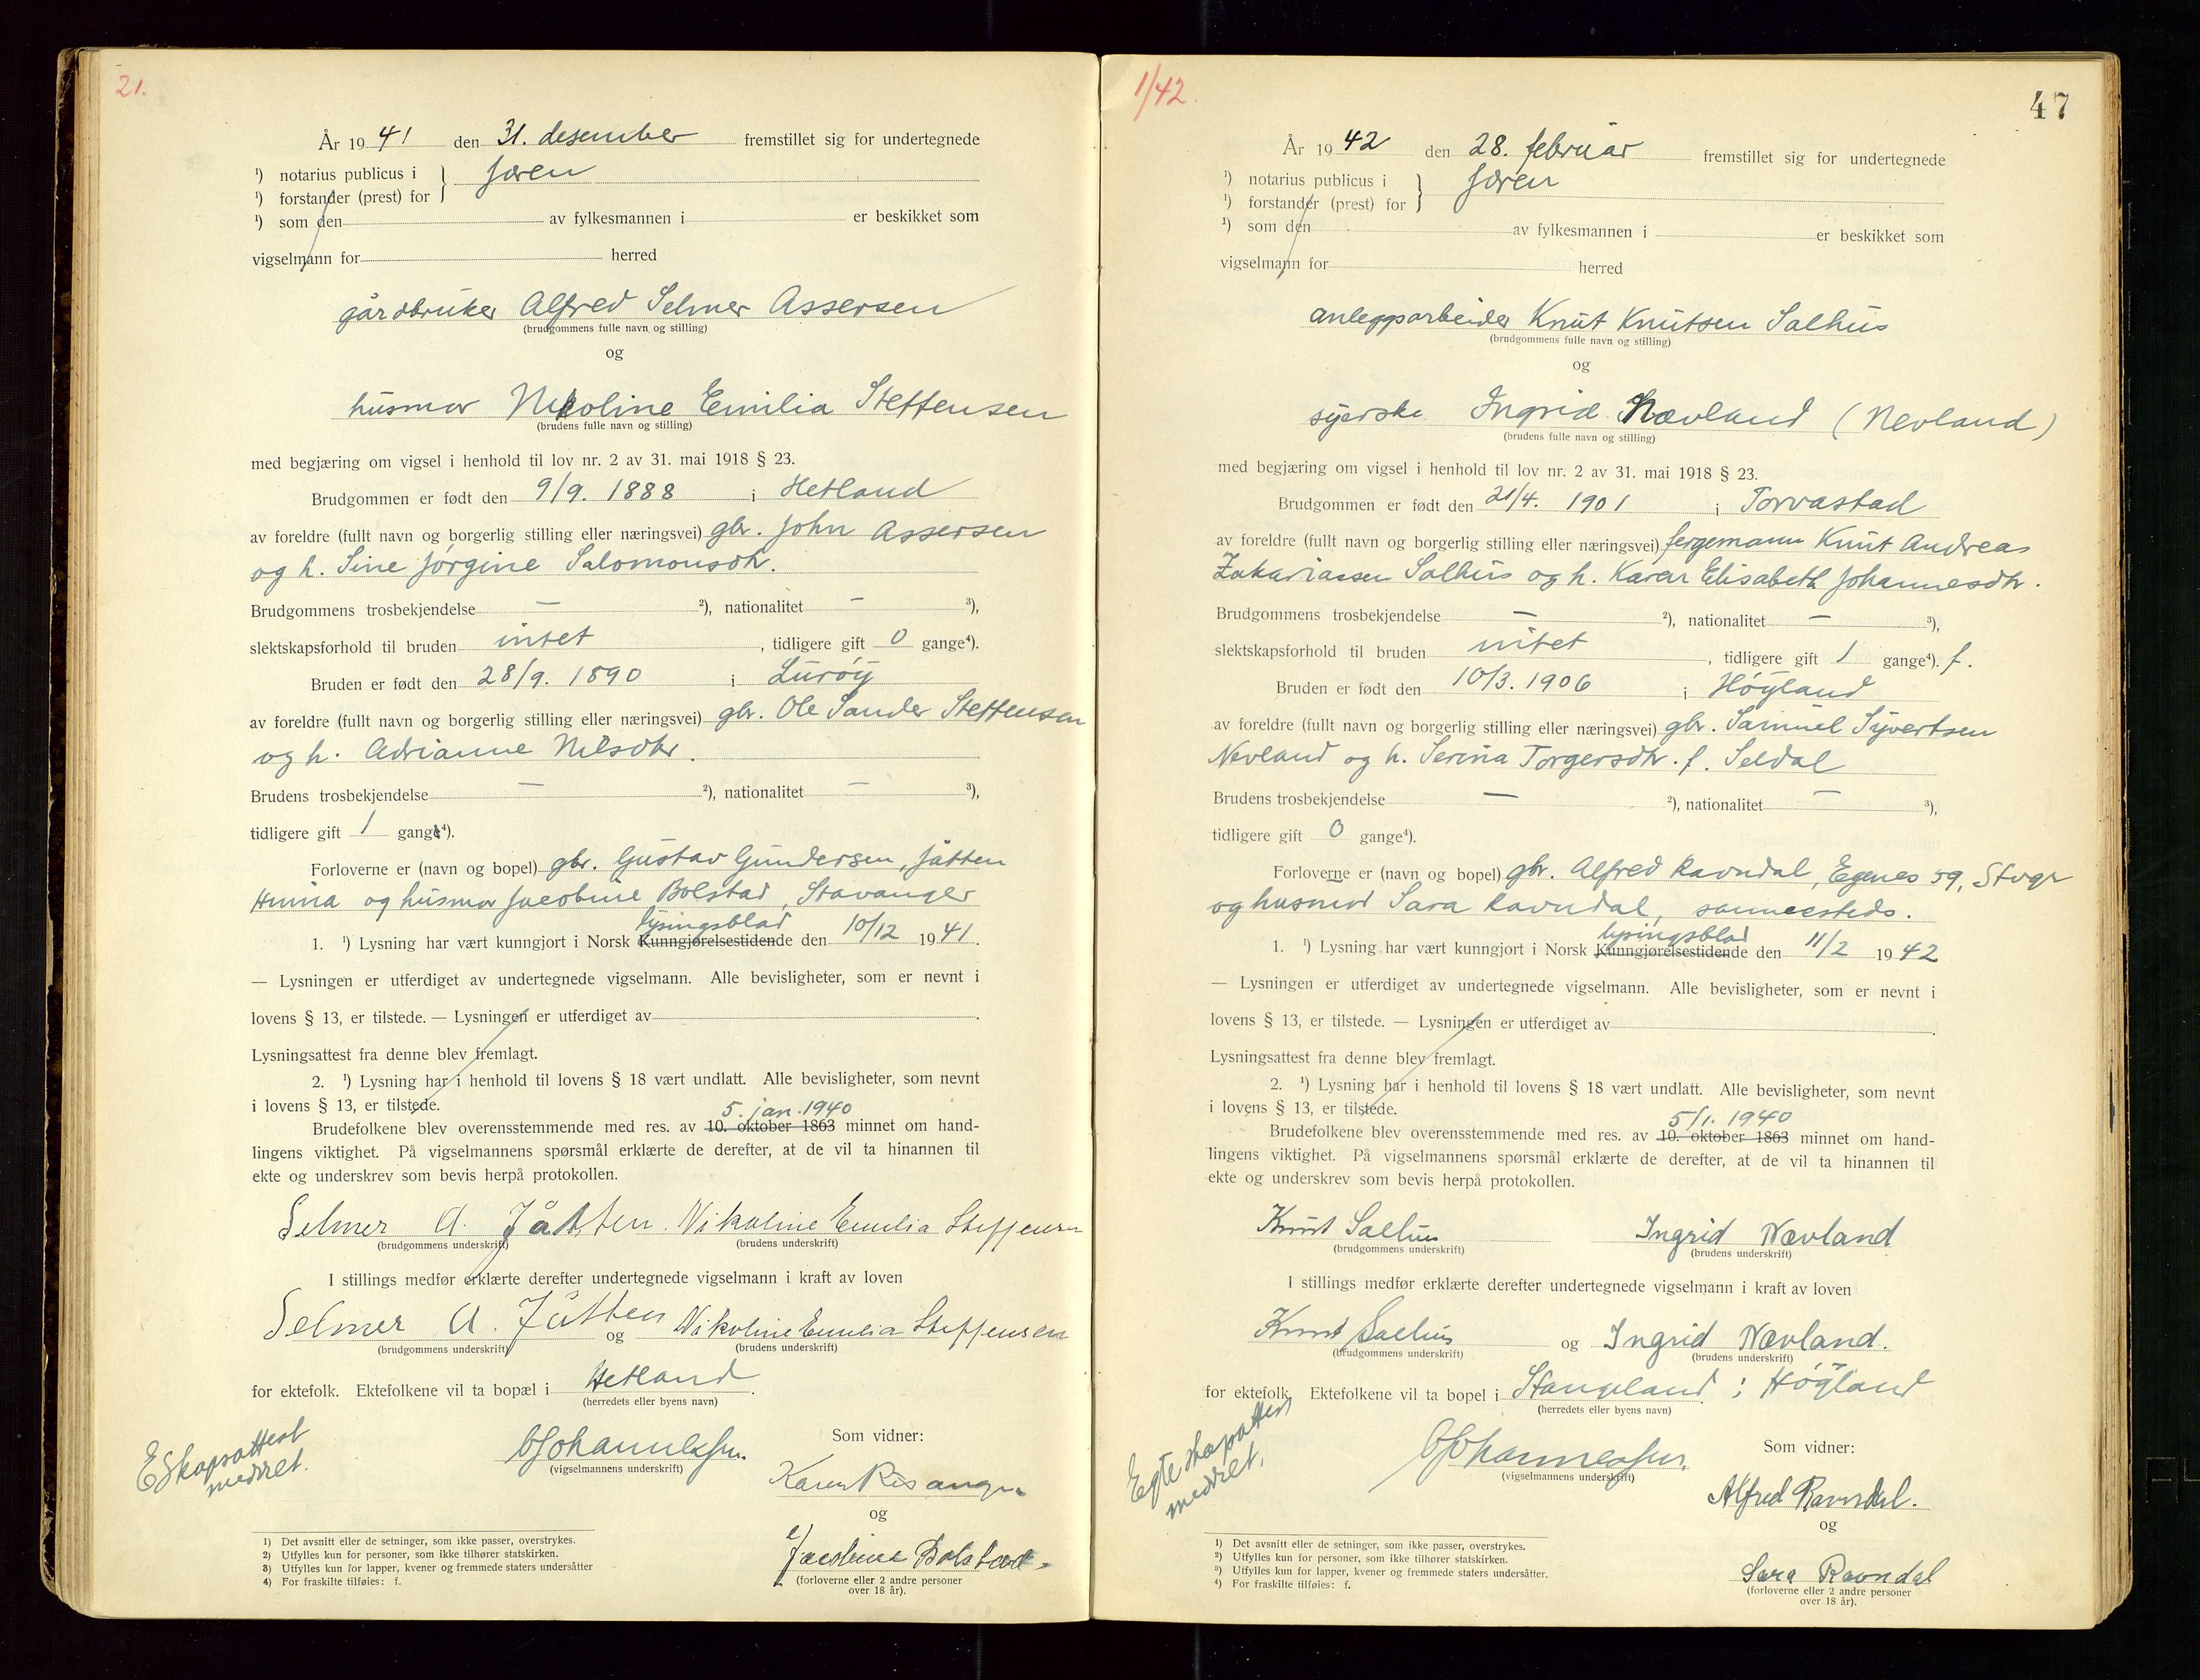 21.
År 1941 den 31. desember fremstillet sig for undertegnede
¹) notarius publicus i } Jæren
¹) forstander (prest) for
¹) som den av fylkesmannen i er beskikket som
vigselmann for herred
gårdbruker Alfred Selmer Assersen
(brudgommens fulle navn og stilling)
og
husmor Nikoline Emilia Steffensen
(brudens fulle navn og stilling)
med begjæring om vigsel i henhold til lov nr. 2 av 31. mai 1918 § 23.
Brudgommen er født den 9/9. 1888 i Hetland
av foreldre (fullt navn og borgerlig stilling eller næringsvei) gbr. John Assersen
og h. Sine Jørgine Salomonsdtr.
Brudgommens trosbekjendelse — ²), nationalitet — ³),
slektskapsforhold til bruden intet, tidligere gift 0 gange⁴).
Bruden er født den 28/9. 1890 i Lurøy
av foreldre (fullt navn og borgerlig stilling eller næringsvei) gbr. Ole Sander Steffensen
og h. Adrianne Nilsdtr.
Brudens trosbekjendelse — ²), nationalitet — ³),
tidligere gift 1 gang⁴).
Forloverne er (navn og bopel) gbr. Gustav Gundersen, Jåtten
Hinna og husmor Jacobine Bolstad, Stavanger
lysingsblad
1. ¹) Lysning har vært kunngjort i Norsk Kunngjørelsestidende den 10/12 1941.
— Lysningen er utferdiget av undertegnede vigselmann. Alle bevisligheter, som er nevnt i
lovens § 13, er tilstede. — Lysningen er utferdiget av
Lysningsattest fra denne blev fremlagt.
2. ¹) Lysning har i henhold til lovens § 18 vært undlatt. Alle bevisligheter, som nevnt
i lovens § 13, er tilstede.
5. jan. 1940
Brudefolkene blev overensstemmende med res. av 10. oktober 1863 minnet om hand-
lingens viktighet. På vigselmannens spørsmål erklærte de derefter, at de vil ta hinannen til
ekte og underskrev som bevis herpå protokollen.
Selmer A. Jåtten Nikoline Emilia Steffensen
(brudgommens underskrift) (brudens underskrift)
I stillings medfør erklærte derefter undertegnede vigselmann i kraft av loven
Selmer A. Jåtten og Nikoline Emilia Steffensen
(brudgommens underskrift) (brudens underskrift)
for ektefolk. Ektefolkene vil ta bopæl i Hetland.
(herredets eller byens navn)
Egskapsattest
meddelt.
Johannessen
(vigselmannens underskrift)
Som vidner:
Karen Risanger
og
Jacobine Bolstad
(forloverne eller 2 andre personer
over 18 år).
1) Det avsnitt eller de setninger, som ikke passer, overstrykes.
2) Utfylles kun for personer, som ikke tilhører statskirken.
3) Utfylles kun for lapper, kvener og fremmede staters undersåtter
4) For fraskilte tilføies: f.
1/42.
47
År 1942 den 28. februar fremstillet sig for undertegnede
¹) notarius publicus i } Jæren
¹) forstander (prest) for
¹) som den av fylkesmannen i er beskikket som
vigselmann for herred
anleggsarbeider Knut Knutsen Salhus
(brudgommens fulle navn og stilling)
og
syerske Ingrid Nævland (Nevland)
(brudens fulle navn og stilling)
med begjæring om vigsel i henhold til lov nr. 2 av 31. mai 1918 § 23.
Brudgommen er født den 21/4. 1901 i Torvastad
av foreldre (fullt navn og borgerlig stilling eller næringsvei) fergemann Knut Andreas
Zakariassen Salhus og h. Karen Elisabeth Johannesdtr.
Brudgommens trosbekjendelse — ²), nationalitet — ³),
slektskapsforhold til bruden intet, tidligere gift 1 gange⁴). f.
Bruden er født den 10/3. 1906 i Høyland
av foreldre (fullt navn og borgerlig stilling eller næringsvei) gbr. Samuel Syvertsen
Nevland og h. Serina Torgersdtr. f. Seldal
Brudens trosbekjendelse — ²), nationalitet — ³),
tidligere gift 0 gange⁴).
Forloverne er (navn og bopel) gbr. Alfred Ravndal, Egenes 59, Stvgr
og husmor Sara Ravndal, sammesteds.
lysingsblad
1. ¹) Lysning har vært kunngjort i Norsk Kunngjørelsestidende den 11/2 1942
— Lysningen er utferdiget av undertegnede vigselmann. Alle bevisligheter, som er nevnt i
lovens § 13, er tilstede. — Lysningen er utferdiget av
Lysningsattest fra denne blev fremlagt.
2. ¹) Lysning har i henhold til lovens § 18 vært undlatt. Alle bevisligheter, som nevnt
i lovens § 13, er tilstede.
5/1. 1940
Brudefolkene blev overensstemmende med res. av 10. oktober 1863 minnet om hand-
lingens viktighet. På vigselmannens spørsmål erklærte de derefter, at de vil ta hinannen til
ekte og underskrev som bevis herpå protokollen.
Knut Salhus Ingrid Nævland
(brudgommens underskrift) (brudens underskrift)
I stillings medfør erklærte derefter undertegnede vigselmann i kraft av loven
Knut Salhus og Ingrid Nævland.
(brudgommens underskrift) (brudens underskrift)
for ektefolk. Ektefolkene vil ta bopel i Stangeland i Høyland
(herredets eller byens navn)
Egteskapsattest
meddelt.
Johannessen
(vigselmannens underskrift)
Som vidner:
Alfred Ravndal.
og
Sara Ravndal
(forloverne eller 2 andre personer
over 18 år).
1) Det avsnitt eller de setninger, som ikke passer, overstrykes.
2) Utfylles kun for personer, som ikke tilhører statskirken.
3) Utfylles kun for lapper, kvener og fremmede staters undersåtter.
4) For fraskilte tilføies: f.